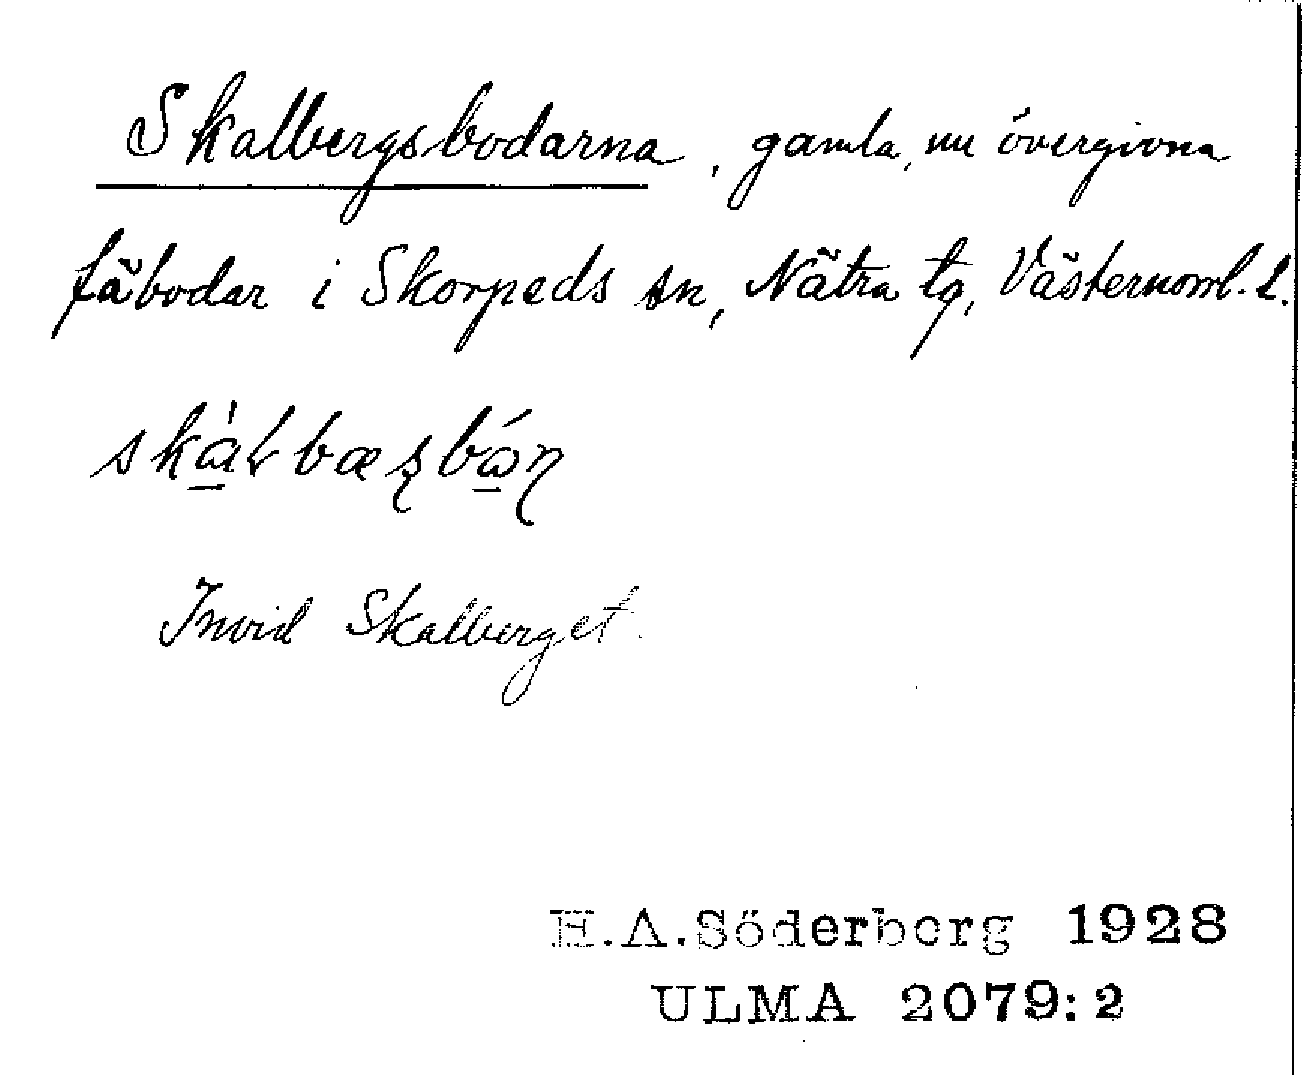 Skalbergsbodarna, gamla, nu övergivna
fäbodar i Skorpeds sn, Nätra tg, Västernorrl. l.
Invid Skalberget.
H.A.Söderberg 1928
ULMA 2079:2